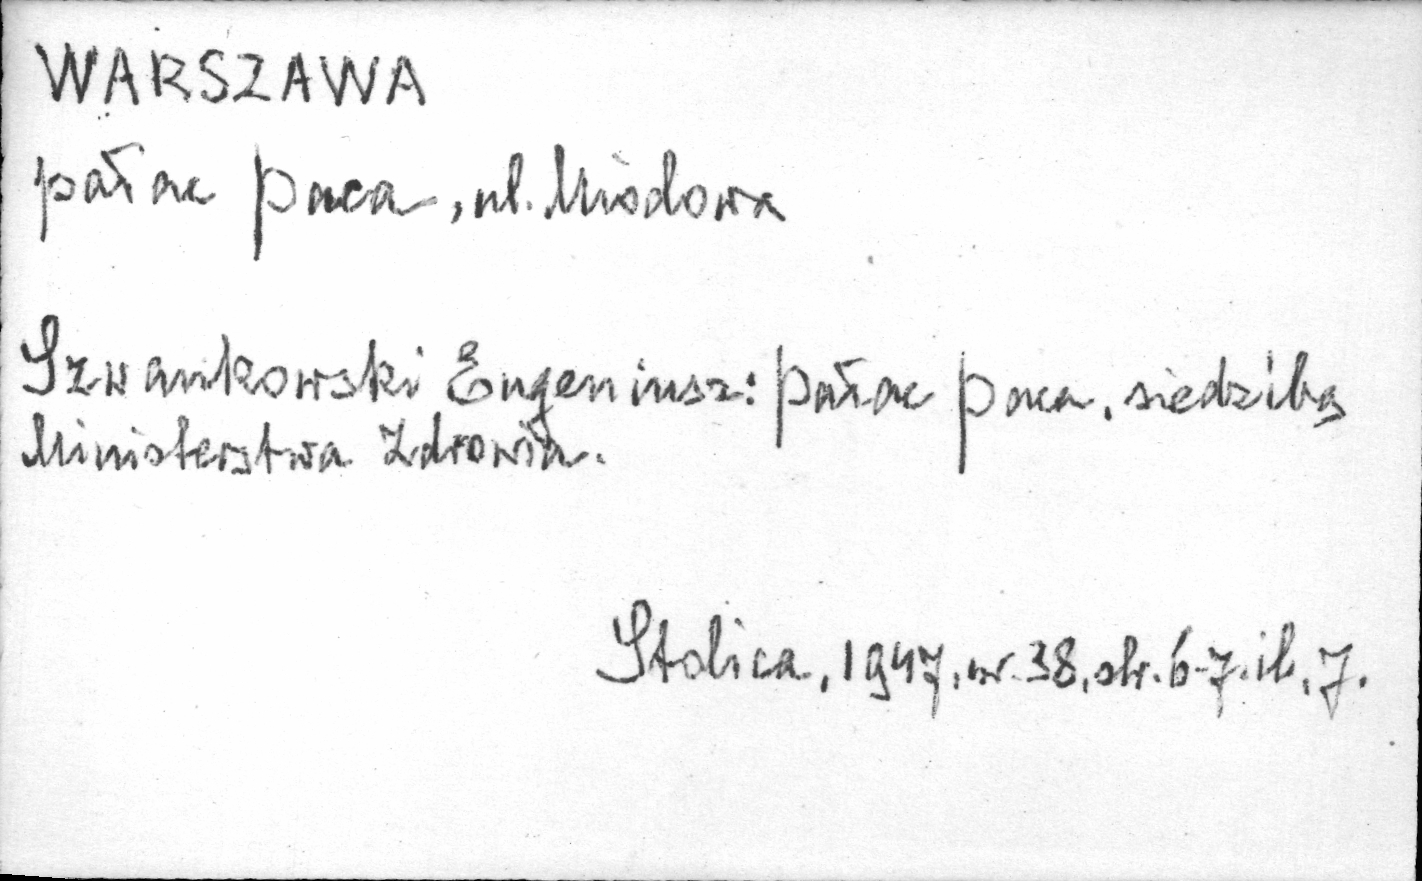 WARSZAWA
pałac Paca, ul. Miodowa
Szwankowski Eugeniusz: Pałac Paca, siedzibą
Ministerstwa Zdrowia.
Stolica, 1947, nr. 38, str. 6-7. il. 7.